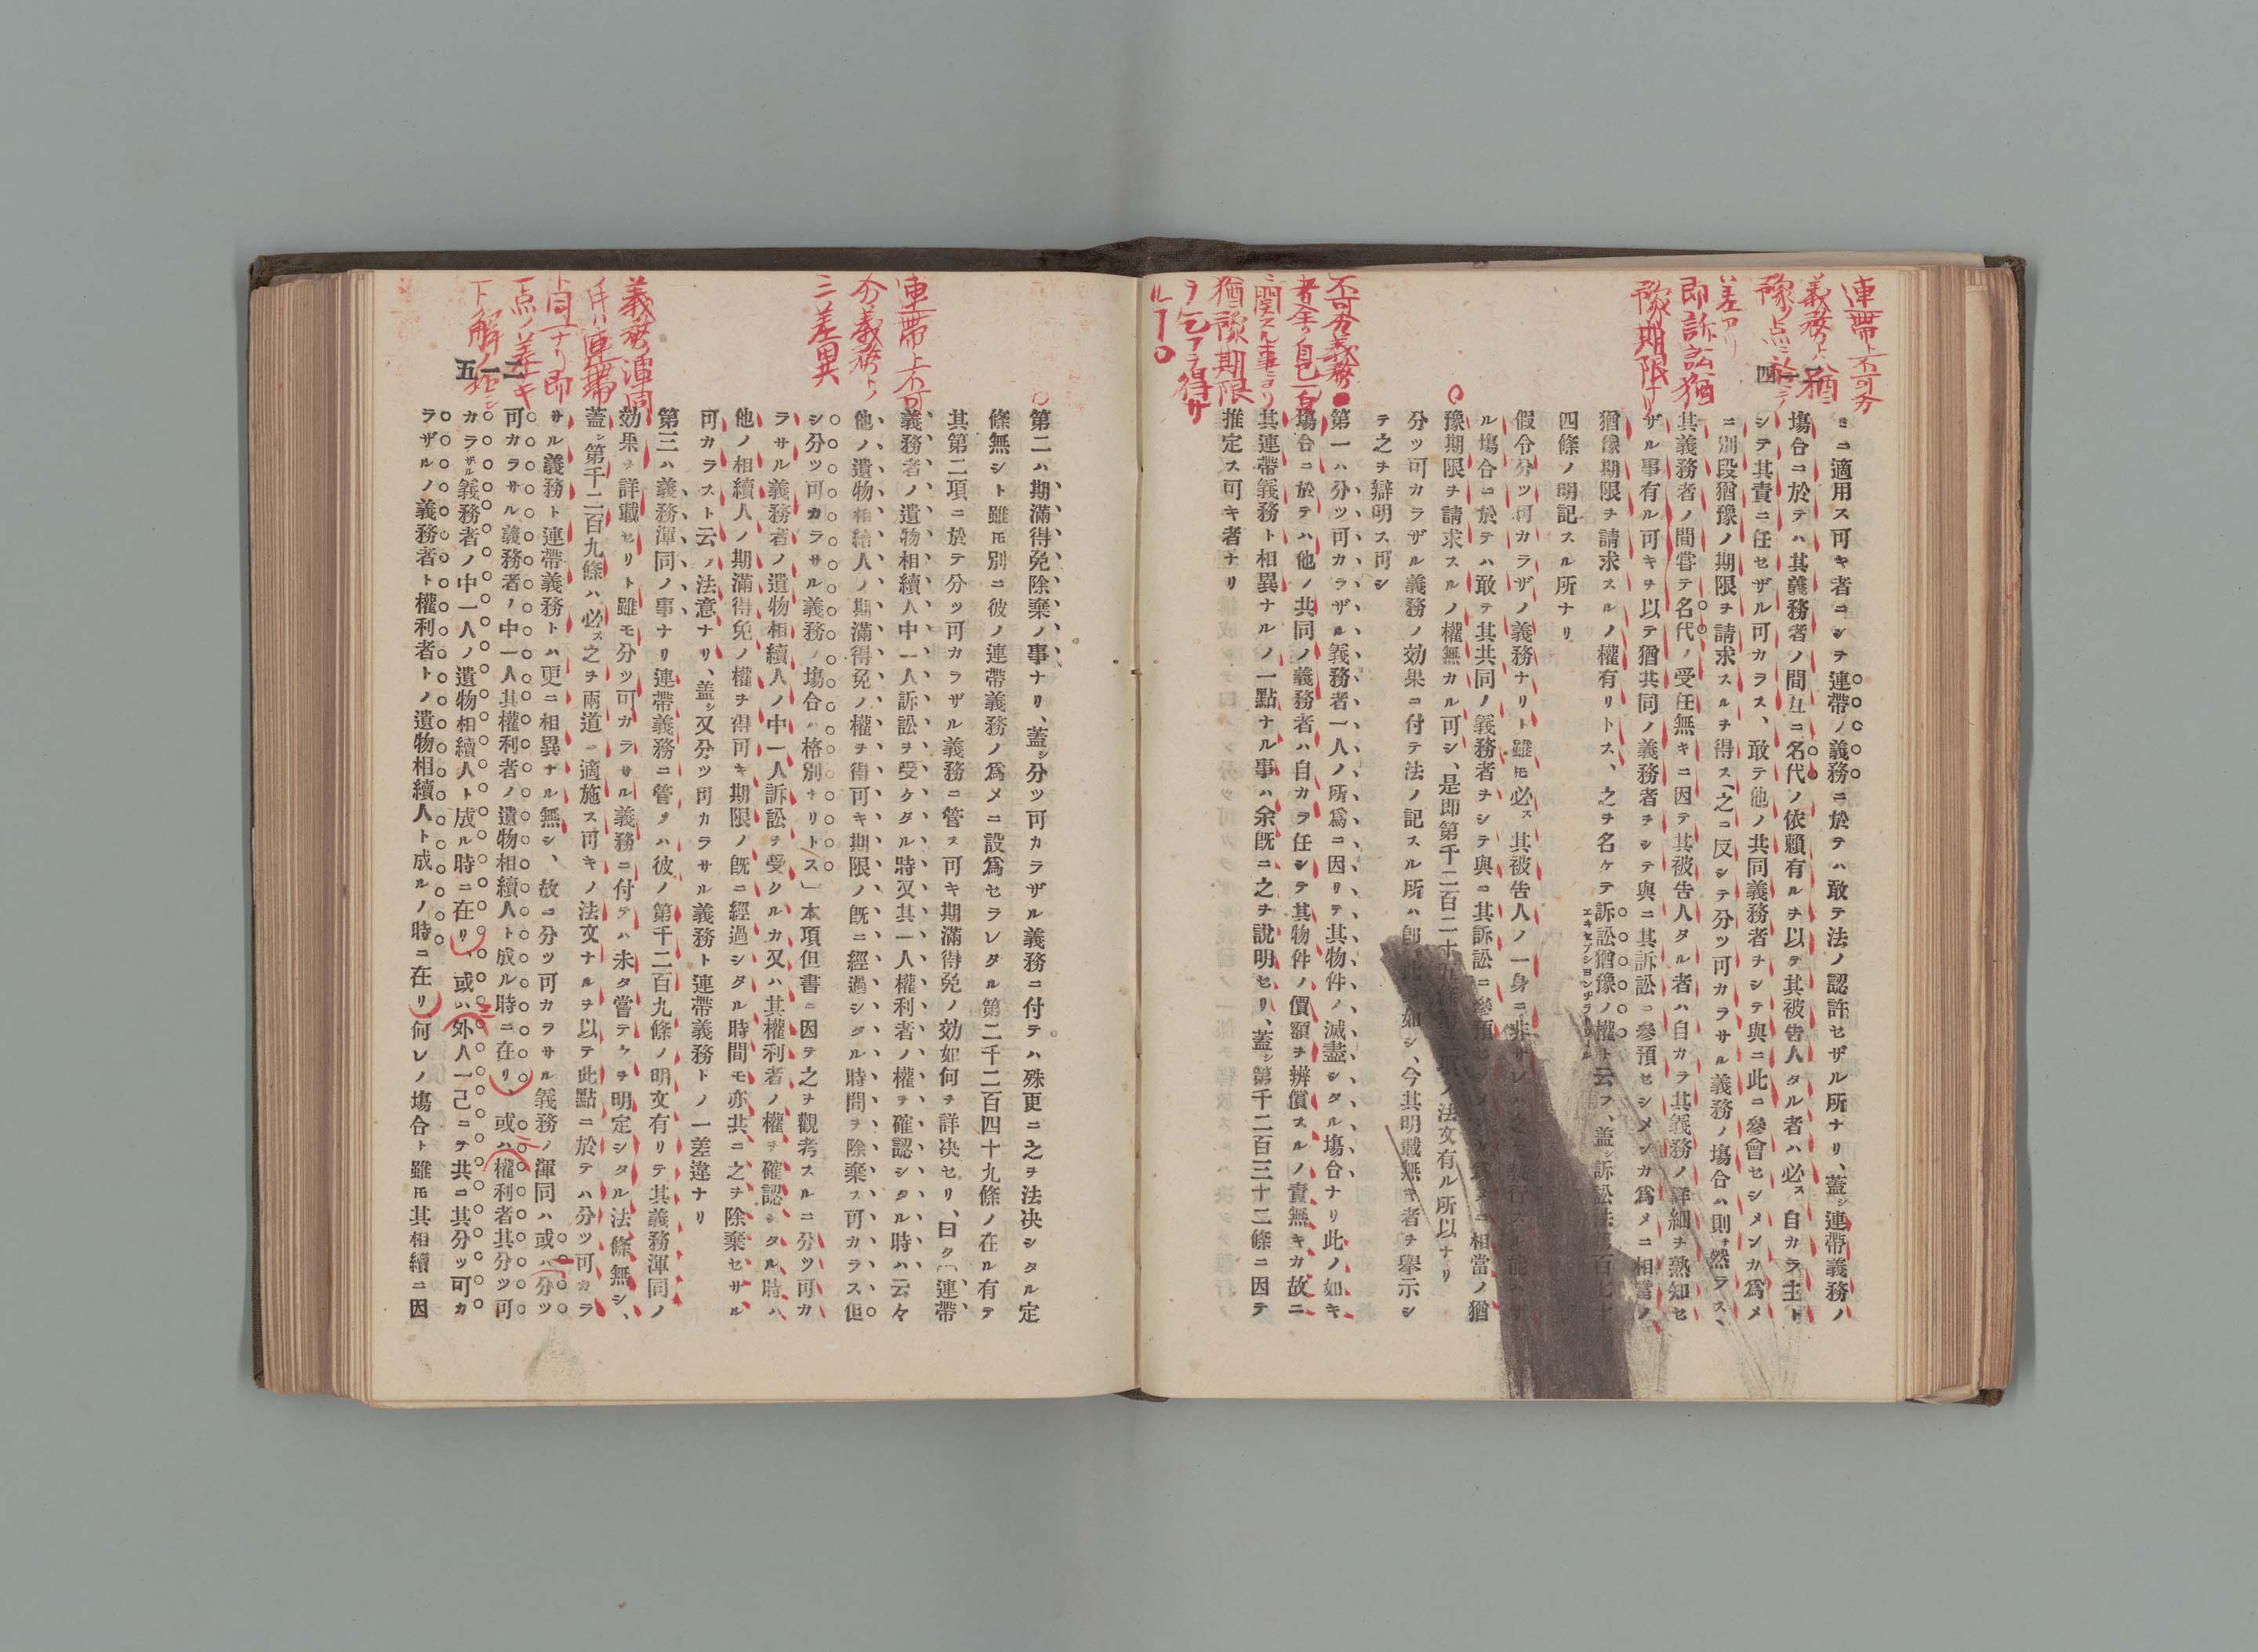 連帶ト不可分
義務トハ猶
豫ノ点ニ於テ
差アリ
即訴訟猶
豫期限ナリ
二一四
ミニ適用ス可キ者ニシテ連帶ノ義務ニ於テハ敢テ法ノ認許セザル所ナリ、蓋シ連帶義務ノ
塲合ニ於テハ其義務者ノ間互ニ名代ノ依賴有ルヲ以テ其被告人タル者ハ必ス自カラ主ト
シテ其責ニ任セザル可カラス、敢テ他ノ共同義務者ヲシテ與ニ此ニ參會セシメンカ爲メ
ニ別段猶豫ノ期限ヲ請求スルヲ得ス「之ニ反シテ分ツ可カラサル義務ノ塲合ハ則チ然ラス、
其義務者ノ間嘗テ名代ノ受任無キニ因テ其被告人タル者ハ自カラ其義務ノ詳細ヲ熟知セ
ザル事有ル可キヲ以テ猶共同ノ義務者ヲシテ與ニ其訴訟ニ參預セシメンカ爲メニ相當ノ
猶豫期限ヲ請求スルノ權有リトス、之ヲ名ケテ訴訟猶豫ノ權ト云フ、蓋シ訴訟法第百七十
四條ノ明記スル所ナリ
假令分ツ可カラザノ義務ナリト雖𪜈必ス其被告人ノ一身ニ非サレハ之ヲ執行スル能ハザ
ル塲合ニ於テハ敢テ其共同ノ義務者ヲシテ與ニ其訴訟ニ參預セシメンカ爲メニ相當ノ猶
豫期限ヲ請求スルノ權無カル可シ、是即第千二百二十五條第二項ノ法文有ル所以ナリ
分ツ可カラザル義務ノ効果ニ付テ法ノ記スル所ハ即此ノ如シ、今其明載無キ者ヲ擧示シ
テ之ヲ辯明ス可シ
不可分義務
者全ク自己一身
ニ關スル事ヨリ
猶豫期限
ヲ乞フヲ得サ
ル丁
第一ハ分ツ可カラザル義務者一人ノ所爲ニ因リテ其物件ノ滅盡シタル塲合ナリ此ノ如キ
塲合ニ於テハ他ノ共同ノ義務者ハ自カラ任シテ其物件ノ價額ヲ辨償スルノ責無キカ故ニ
其連帶義務ト相異ナルノ一點ナル事ハ余旣ニ之ヲ說明セリ、蓋シ第千二百三十二條ニ因テ
推定ス可キ者ナリ
第二ハ期滿得免除棄ノ事ナリ、蓋シ分ツ可カラザル義務ニ付テハ殊更ニ之ヲ法決シタル定
條無シト雖𪜈別ニ彼ノ連帶義務ノ爲メニ設爲セラレタル第二千二百四十九條ノ在ル有テ
其第二項ニ於テ分ツ可カラザル義務ニ管ス可キ期滿得免ノ効如何ヲ詳決セリ、曰ク「連帶
義務者ノ遺物相續人中一人訴訟ヲ受ケタル時又其一人權利者ノ權ヲ確認シタル時ハ云々
他ノ遺物相續人ノ期滿得免ノ權ヲ得可キ期限ノ旣ニ經過シタル時間ヲ除棄ス可カラス但
シ分ツ可カラサル義務ノ塲合ハ格別ナリトス」本項但書ニ因テ之ヲ觀考スルニ分ツ可カ
ラサル義務者ノ遺物相續人ノ中一人訴訟ヲ受クルカ又ハ其權利者ノ權ヲ確認シタル時ハ、
他ノ相續人ノ期滿得免ノ權ヲ得可キ期限ノ旣ニ經過シタル時間モ亦共ニ之ヲ除棄セサル
可カラスト云ノ法意ナリ、盖シ又分ツ可カラサル義務ト連帶義務トノ一差違ナリ
連帶ト不可
分義務トノ
三差異
第三ハ義務渾同ノ事ナリ連帶義務ニ管テハ彼ノ第千二百九條ノ明文有リテ其義務渾同ノ
効果ヲ詳載セリト雖モ分ツ可カラサル義務ニ付テハ未タ嘗テ之ヲ明定シタル法條無シ、
蓋シ第千二百九條ハ必ス之ヲ兩道ニ適施ス可キノ法文ナルヲ以テ此點ニ於テハ分ツ可カラ
サル義務ト連帶義務トハ更ニ相異ナル無シ、故ニ分ツ可カラサル義務ノ渾同ハ或ハ分ツ
可カラサル義務者ノ中一人其權利者ノ遺物相續人ト成ル時ニ在リ、或ハ權利者其分ツ可
カラザル義務者ノ中一人ノ遺物相續人ト成ル時ニ在リ、或ハ外人一己ニテ共ニ其分ツ可カ
ラザルノ義務者ト權利者トノ遺物相續人ト成ルノ時ニ在リ何レノ塲合ト雖𪜈其相續ニ因
義務渾同
ノ件ハ連帶
ト同一ナリ即
一点ノ差ナキ
ト解ノ
二一五